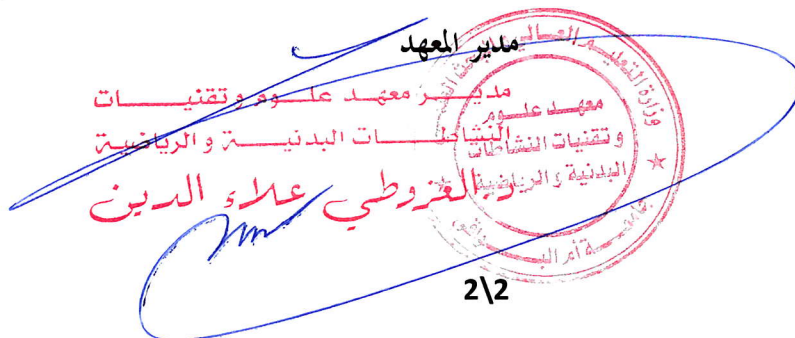 مدير المعهد
مديـر معهـد علـوم وتقنيـات
النشاطـات البدنيـة والرياضية
د. الغزوطي علاء الدين
وزارة التعليم العـالي
معهد علوم
و تقنيات النشاطات
البدنية و الرياضية
جامعـة أم البـواقي
2\2